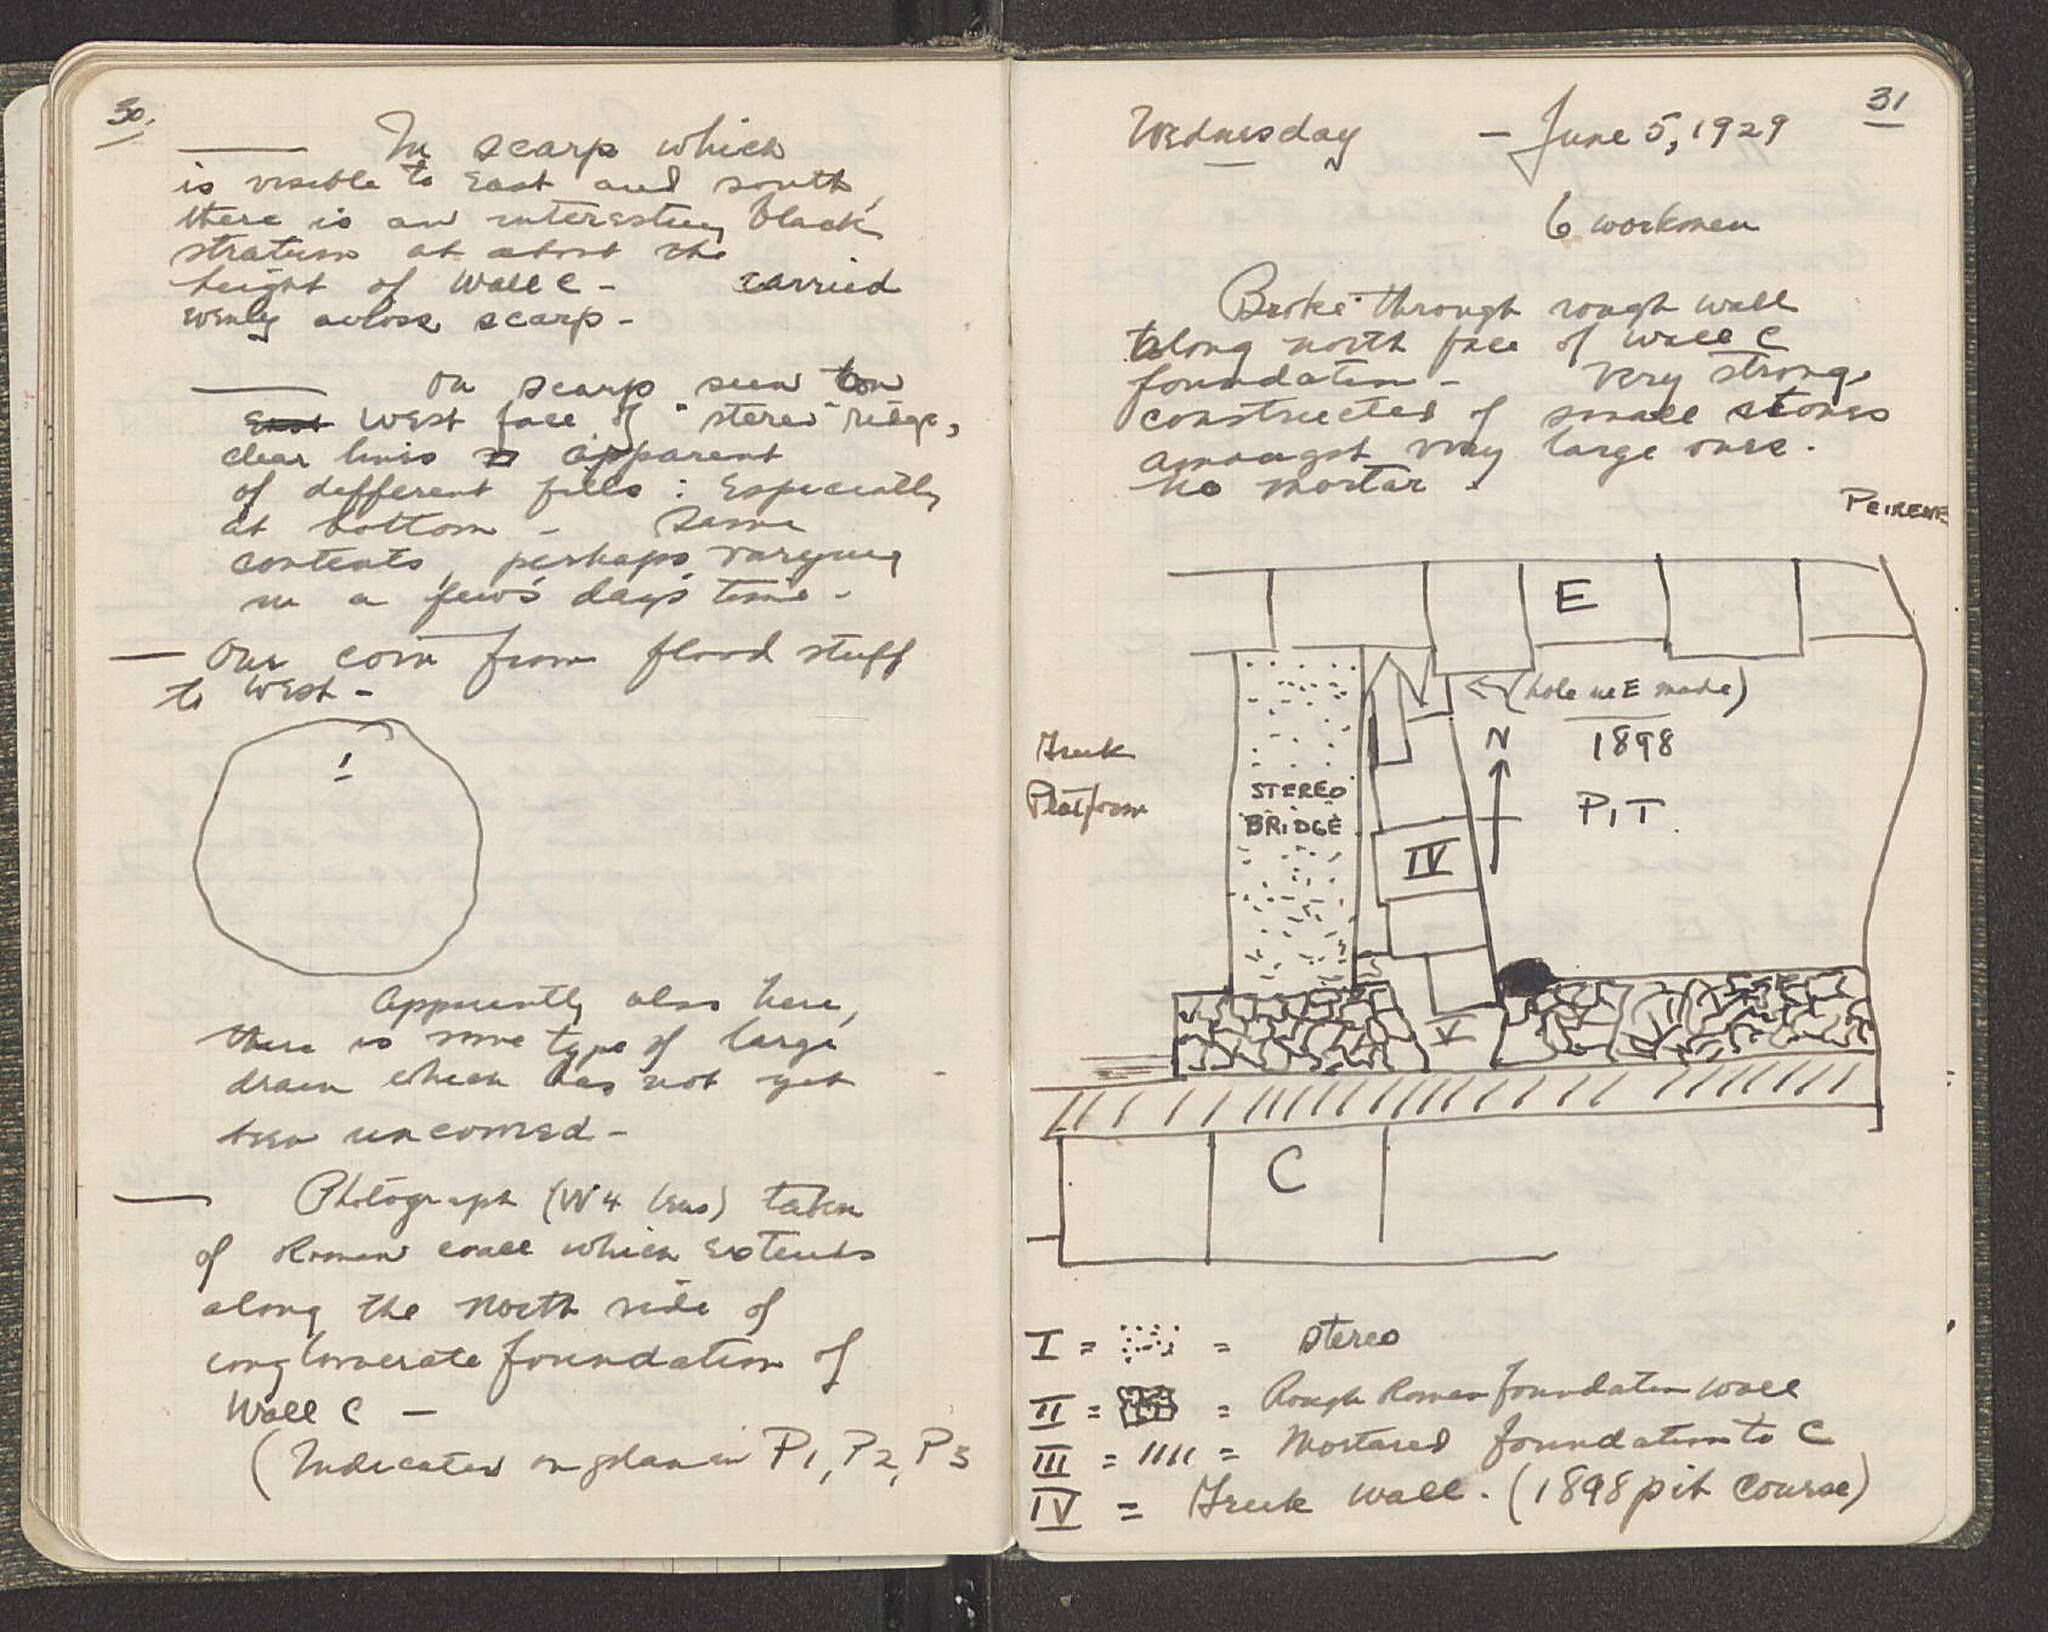 30.
— In scarp which
is visible to East and south,
there is an interesting black
stratum at about the
height of Wall C - carried
evenly across scarp -
— On scarp seen on
East West face of "stereo" ridge,
clear lines apparent
of different fills : Especially
at bottom - Same
contents, perhaps varying
in a few's days time -
— One coin from flood stuff
to West -
1
Apparently also here,
there is some type of large
drain which has not yet
been uncovered -
— Photograph (W4 lens) taken
of Roman wall which Extends
along the North side of
conglomerate foundation of
Wall C —
(Indicated on plan in P1, P2, P3
31
Wednesday - June 5, 1929
6 workmen
Broke through rough wall
along north face of Wall C
foundation - Very strong,
constructed of small stones
amongst very large ones.
No mortar.
PEIRENE
E
(hole we E made)
Greek
Platform
N
1898
PIT
STEREO
BRIDGE
IV
V
C
I = = stereo
II = = Rough Roman foundation wall
III = //// = Mortared foundation to C
IV = Greek Wall. (1898 pit course)